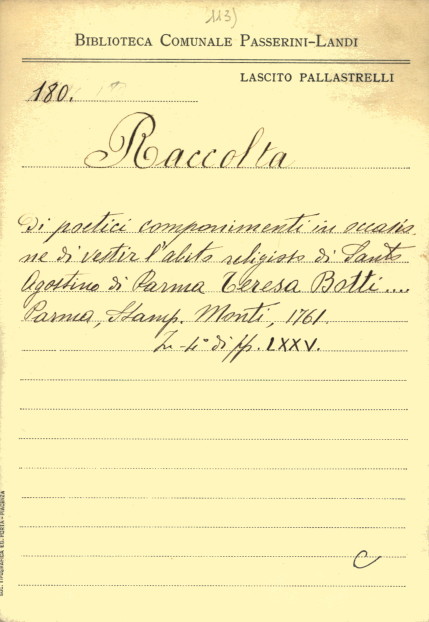 113)
BIBLIOTECA COMUNALE PASSERINI-LANDI
LASCITO PALLASTRELLI
180.
Raccolta
di poetici componimenti in occasio
ne di vestir l'abito religioso di Santo
Agostino di Parma Teresa Botti....
Parma, Stamp. Monti, 1761.
In-4° di pp. LXXV.
C